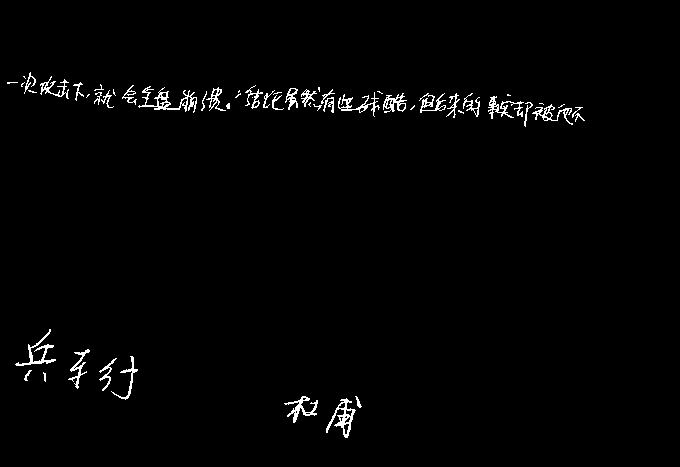 一次攻击下,就会全盘崩溃。”结论虽然有些残酷,但后来的事实却被他不
兵车行
杜甫